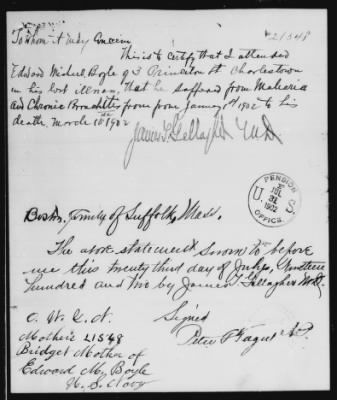 To whom it may Concern
21548
This is to certify that I attended
Edward Michael Boyle of 3 Princeton St Charlestown
in his last illness, that he suffered from Malaria
and Chronic Bronchitis from from January 1st 1902 to his
death, March 10th 1902
James Gallagher M.D.
PENSION
U. S.
JUL
31
1902
OFFICE.
Boston, County of Suffolk, Mass.
The above statement Sworn to before
me this twenty third day of July, Nineteen
hundred and two by James Gallagher M.D.
O. W. & N.
Signed
Mothers 21548
Peter
Bridget Mother of
Edward M. Boyle
U. S. Navy